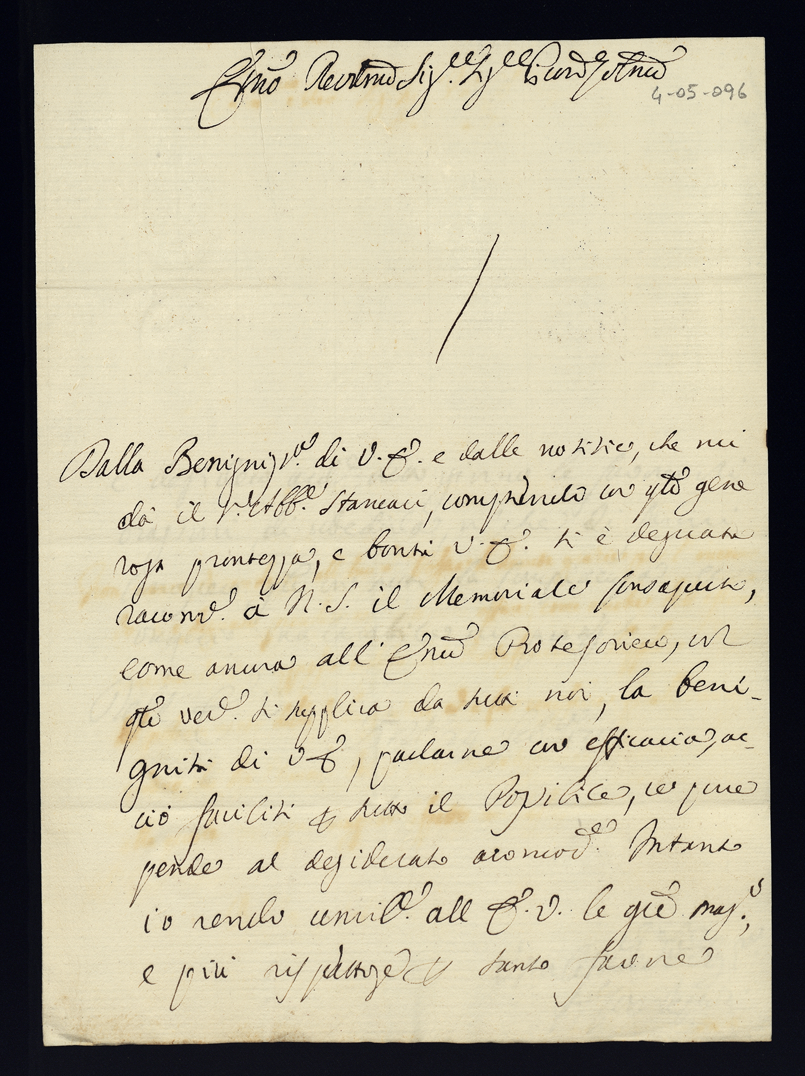 Em̃o Reverend̃ Sig.re Sig.re Pron Col̃mo
4-05-096
Dalla Benignis.ma di V. E. e dalle notitie, che mi
dà il S.r Abb.e Stancari, comprendo con q̃ta gene
rosa prontezza, e bontà V. E. si è degnata
racom.e à N. S. il Memoriale consaputo,
come ancora all' Em̃o
si supplica da tutti noi, la beni-
gnità di V E, parlarne con efficacia, ac-
ciò faciliti tutto il Possibile,
al desiderato acomod.o Intanto
io rendo umil.e all E. V. le gr̃e mag.ri,
e più rispettose tanto favore